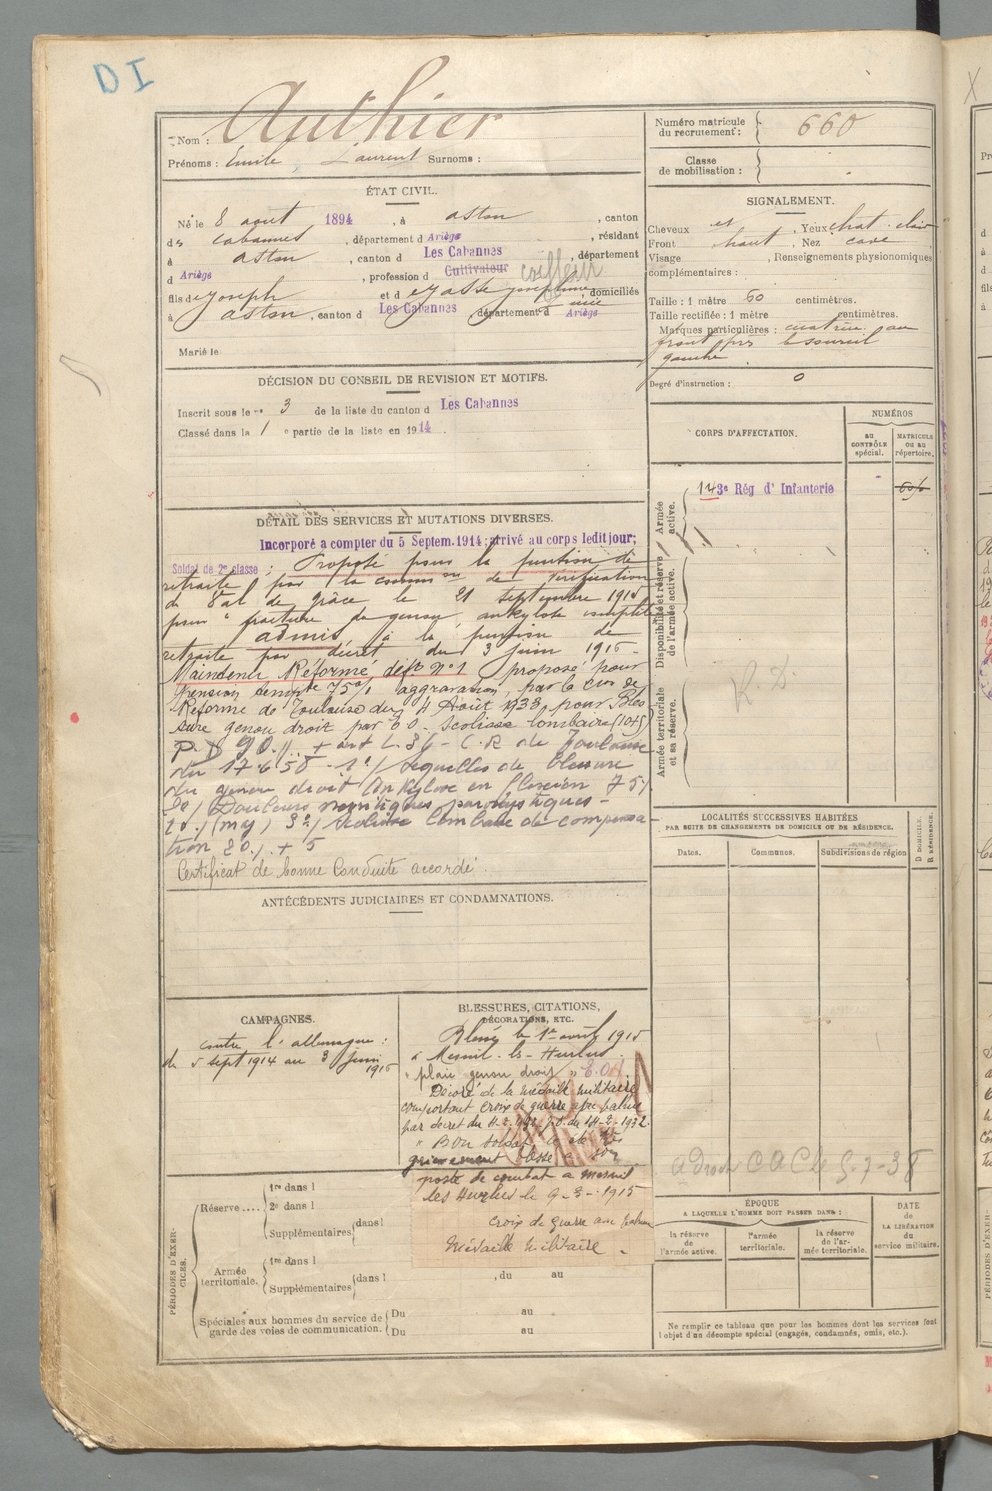 DI
Nom : Authier
Prénoms : Emile Laurent Surnoms :
Numéro matricule du recrutement : 660
Classe de mobilisation :
ÉTAT CIVIL.
Né le 8 aout 1894, à Aston, canton
des Cabannes, département d Ariège, résidant
à Aston, canton d Les Cabannes, département
d Ariège, profession d Cultivateur coiffeur
fils de Joseph et d domiciliés
à Aston, canton d Les Cabannes, département d Ariège
Marié le
SIGNALEMENT.
Cheveux Yeux chat. clair
Front haut, Nez cave
Visage , Renseignements physionomiques
complémentaires :
Taille : 1 mètre 60 centimètres.
Taille rectifiée : 1 mètre centimètres.
Marques particulières : cicatrice au
front près le sourcil
gauche.
Degré d'instruction : 0
DÉCISION DU CONSEIL DE REVISION ET MOTIFS.
Inscrit sous le no 3 de la liste du canton d Les Cabannes
Classé dans la 1 e partie de la liste en 1914.
CORPS D'AFFECTATION.
NUMÉROS
au CONTRÔLE spécial.
MATRICULE ou au répertoire.
Armée active.
143e Rég d' Infanterie
Disponibilité et réserve de l'armée active.
Armée territoriale et sa réserve.
R. D.
DÉTAIL DES SERVICES ET MUTATIONS DIVERSES.
Incorporé a compter du 5 Septem. 1914; arrivé au corps ledit jour;
Soldat de 2e classe : Proposé pour la pension de
retraite par la comm on de vérification
du Val de grâce le 21 septembre 1915
pour " fracture du genou, ankylose complète
admis à la pension de
retraite par décret du 3 juin 1916 -
Maintenu Réformé déf. n°1 proposé pour
pension 75% aggravation, par la Con de
Réforme de Toulouse du 4 Août 1933, pour Bles
sure genou droit par E O. Scoliose lombaire (10+5)
P. D 90 % + art L. 36 - C.R de Toulouse
du 17.6.58 - 1°/ Sequelles de blessure
du genou droit Ankylose en flexion 75%
2°/ Douleurs paroxystiques -
3°/ Scoliose lombaire de compensa
tion 20% + 5
Certificat de bonne Conduite accordé.
LOCALITÉS SUCCESSIVES HABITÉES
PAR SUITE DE CHANGEMENTS DE DOMICILE OU DE RÉSIDENCE.
Dates.
Communes.
Subdivisions de région
D DOMICILE. R RÉSIDENCE.
ANTÉCÉDENTS JUDICIAIRES ET CONDAMNATIONS.
CAMPAGNES.
Contre l'allemagne :
du 5 sept 1914 au 3 juin
1916
BLESSURES, CITATIONS,
DÉCORATIONS, ETC.
Blessé le 1er avril 1915
à Mesnil-les-Hurlus.
" plaie genou droit " E.O.
Décoré de la médaille militaire
comportant croix de guerre avec palme
par décret du J.O. du 14-2-1932.
" Bon soldat a été très
grièvement blessé à son
poste de combat à Mesnil
les Hurlus le 9-3-1915
Croix de guerre avec palme
Médaille Militaire.
PÉRIODES D'EXERCICES.
Réserve .... 1re dans l
2e dans l
Supplémentaires dans l
Armée territoriale. 1re dans l
Supplémentaires dans l , du au
Spéciales aux hommes du service de garde des voies de communication. Du au
Du au
5-7-38
ÉPOQUE
A LAQUELLE L'HOMME DOIT PASSER DANS :
la réserve de l'armée active.
l'armée territoriale.
la réserve de l'armée territoriale.
DATE de LA LIBÉRATION du service militaire.
Ne remplir ce tableau que pour les hommes dont les services font
l'objet d'un décompte spécial (engagés, condamnés, omis, etc.).